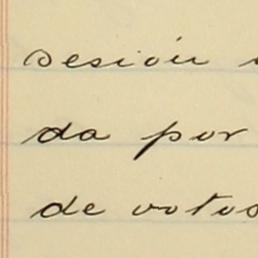 sesión
da por
de votos